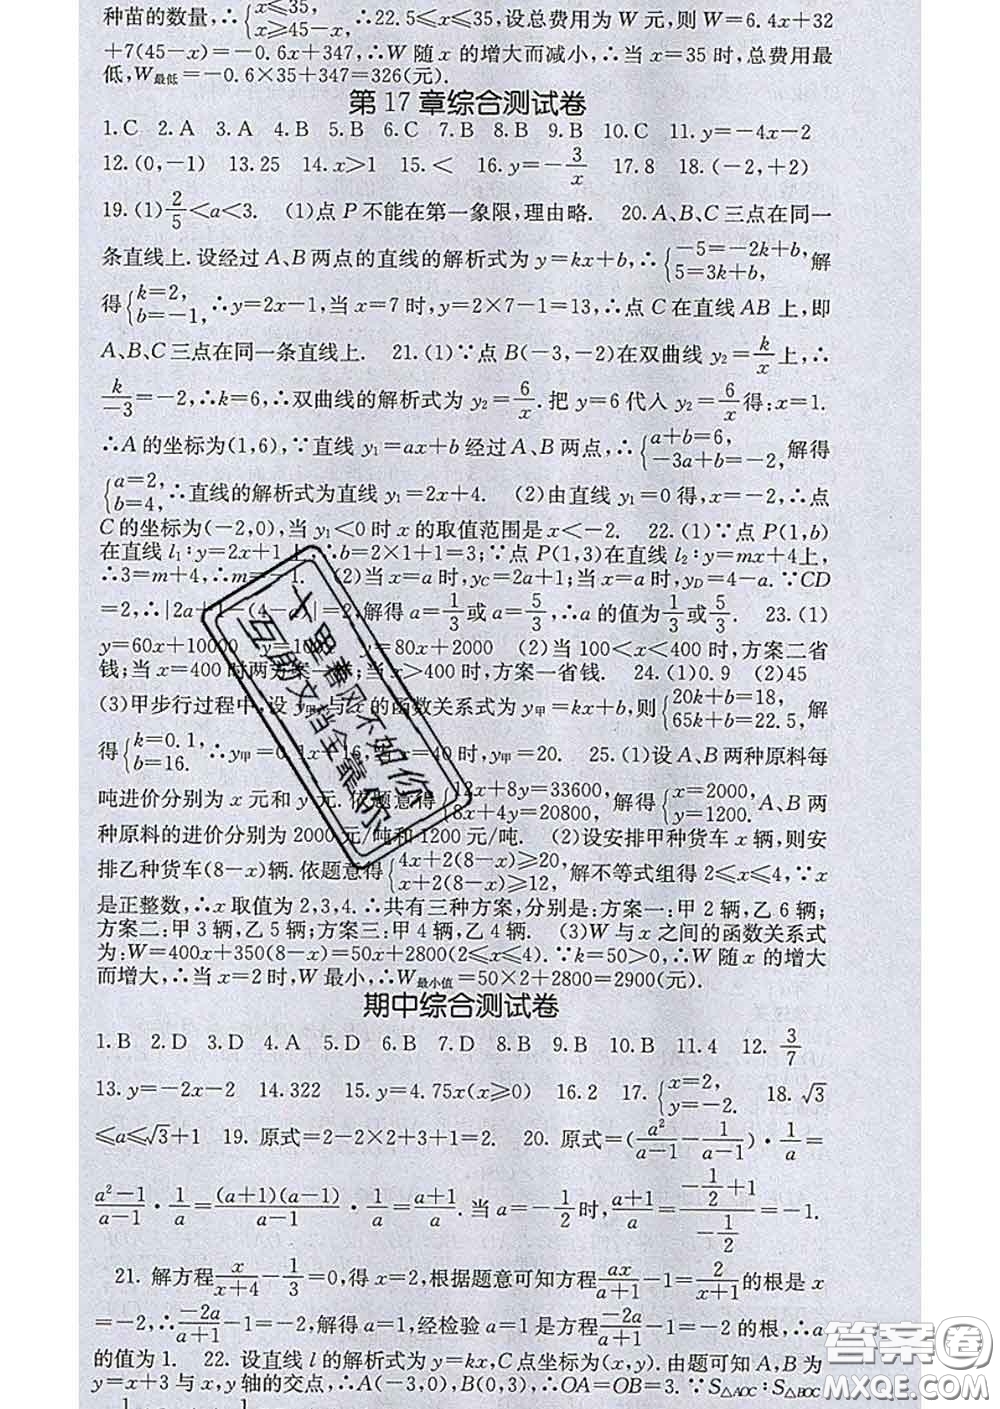 种苗的数量,∴{x≤35, x≥45-x, ∴22.5≤x≤35,设总费用为 W 元,则 W=6.4x+32
+7(45-x)=-0.6x+347,∴W 随 x 的增大而减小,∴当 x=35 时,总费用最
低,W最低=-0.6×35+347=326(元).
第 17 章综合测试卷
1.C 2.A 3.A 4.B 5.B 6.C 7.B 8.B 9.B 10.C 11.y=-4x-2
12.(0,-1) 13.25 14.x>1 15.< 16.y=-3/x 17.8 18.(-2,+2)
19.(1)2/5<a<3. (1)点 P 不能在第一象限,理由略. 20.A、B、C 三点在同一
条直线上.设经过 A、B 两点的直线的解析式为 y=kx+b,∴{-5=-2k+b, 5=3k+b, 解
得{k=2, b=-1, ∴y=2x-1,当 x=7 时,y=2×7-1=13,∴点 C 在直线 AB 上,即
A、B、C 三点在同一条直线上. 21.(1)∵点 B(-3,-2)在双曲线 y₂=k/x 上,∴
k/-3=-2,∴k=6,∴双曲线的解析式为 y₂=6/x.把 y=6 代入 y₂=6/x 得:x=1.
∴A 的坐标为(1,6),∵直线 y₁=ax+b 经过 A、B 两点,∴{a+b=6, -3a+b=-2, 解得
{a=2, b=4, ∴直线的解析式为直线 y₁=2x+4. (2)由直线 y₁=0 得,x=-2,∴点
C 的坐标为(-2,0),当 y₁<0 时 x 的取值范围是 x<-2. 22.(1)∵点 P(1,b)
在直线 l₁:y=2x+1 上,∴b=2×1+1=3;∵点 P(1,3)在直线 l₂:y=mx+4上,
∴3=m+4,∴m=-1. (2)当 x=a 时,yC=2a+1;当 x=a 时,yD=4-a.∵CD
=2,∴|2a+1-(4-a)|=2,解得 a=1/3或 a=5/3,∴a 的值为1/3或5/3. 23.(1)
y=60x+10000 y=100x y=80x+2000 (2)当 100<x<400 时,方案二省
钱;当 x=400 时两方案一样;当 x>400 时,方案一省钱. 24.(1)0.9 (2)45
(3)甲步行过程中,设 y甲与 x 的函数关系式为 y甲=kx+b,则{20k+b=18, 65k+b=22.5, 解
得{k=0.1, b=16. ∴y甲=0.1x+16,当 x=40 时,y甲=20. 25.(1)设 A、B 两种原料每
吨进价分别为 x 元和 y 元.依题意得{12x+8y=33600, 8x+4y=20800, 解得{x=2000, y=1200. A、B 两
种原料的进价分别为 2000 元/吨和 1200 元/吨. (2)设安排甲种货车 x 辆,则安
排乙种货车(8-x)辆.依题意得{4x+2(8-x)≥20, x+2(8-x)≥12, 解不等式组得 2≤x≤4,∵x
是正整数,∴x 取值为 2,3,4.∴共有三种方案,分别是:方案一:甲 2 辆,乙 6 辆;
方案二:甲 3 辆,乙 5 辆;方案三:甲 4 辆,乙 4 辆. (3)W 与 x 之间的函数关系式
为:W=400x+350(8-x)=50x+2800(2≤x≤4).∵k=50>0,∴W 随 x 的增大
而增大,∴当 x=2 时,W 最小,∴W最小值=50×2+2800=2900(元).
期中综合测试卷
1.B 2.D 3.D 4.A 5.D 6.B 7.D 8.B 9.B 10.B 11.4 12. 3/7
13.y=-2x-2 14.322 15.y=4.75x(x≥0) 16.2 17.{x=2, y=-2. 18.√3
≤a≤√3+1 19. 原式=2-2×2+3+1=2. 20. 原式=(a²/a-1-1/a-1)·1/a=
a²-1/a-1·1/a=(a+1)(a-1)/a-1·1/a=a+1/a.当 a=-1/2时,a+1/a=-1/2+1/-1/2=-1.
21. 解方程x/x+4-1/3=0,得 x=2,根据题意可知方程ax/a+1-1=2/x+1的根是 x
=-2,∴-2a/a+1-1=-2,解得 a=1,经检验 a=1 是方程-2a/a+1-1=-2 的根,∴a
的值为 1. 22. 设直线 l 的解析式为 y=kx,C 点坐标为(x,y).由题可知 A,B 为
y=x+3 与 x,y 轴的交点,∴A(-3,0),B(0,3),∴OA=OB=3.∵S△AOC:S△BOC
十里春风不如你
互联文档全靠你
答案圈
MXQE.COM